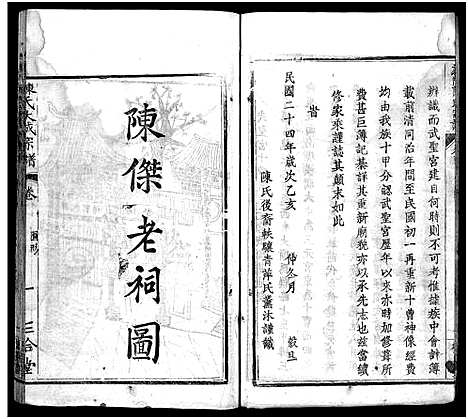 辨識而武聖宮建自何時則不可考惟據族中會計簿
載前清同治年間至民國初一再重新十曹神像經費
均由我族十甲分認武聖宮歷年以來亦時加修葺所
費甚巨簿記綦詳其重新廟貌亦以承先志也茲當續
修家乘謹誌其顛末如此
旹
民國二十四年歲次乙亥 仲冬月 穀旦
陳氏後裔軼驤青萍氏薰沐謹識
陳傑老祠圖
陳氏大成宗譜 卷 圖形 一 三合堂